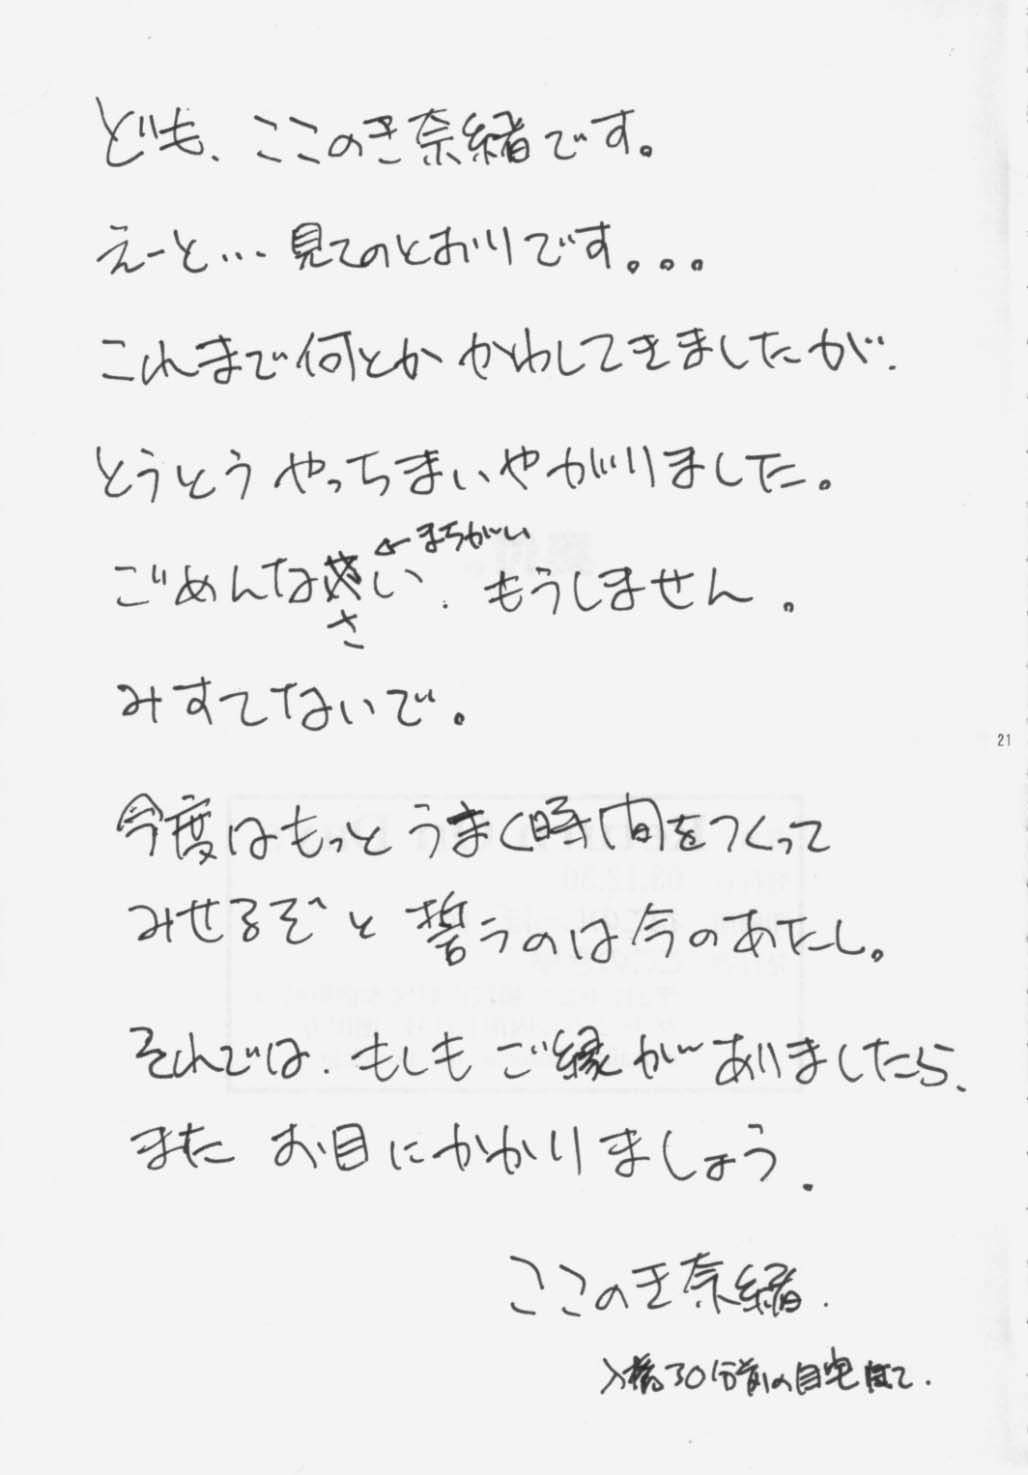 ども、ここのき奈緒です。
えーと…見てのとおりです。。。
これまで何とかかわしてきましたが、
とうとうやっちまいやがりました。
←まちがい
ごめんなさい. もうしません。
みすてないで。
21
今度はもっとうまく時間をつくって
みせるぞと誓うのは今のあたし。
それでは、もしもご縁がありましたら、
またお目にかかりましょう.
ここのき奈緒.
入稿30分前の自宅にて.